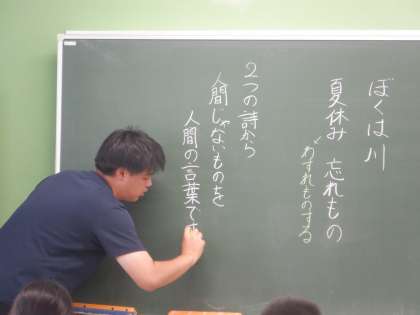 ぼくは川
夏休み 忘れもの
わすれものする
2つの詩から
人間じゃないものを
人間の言葉で